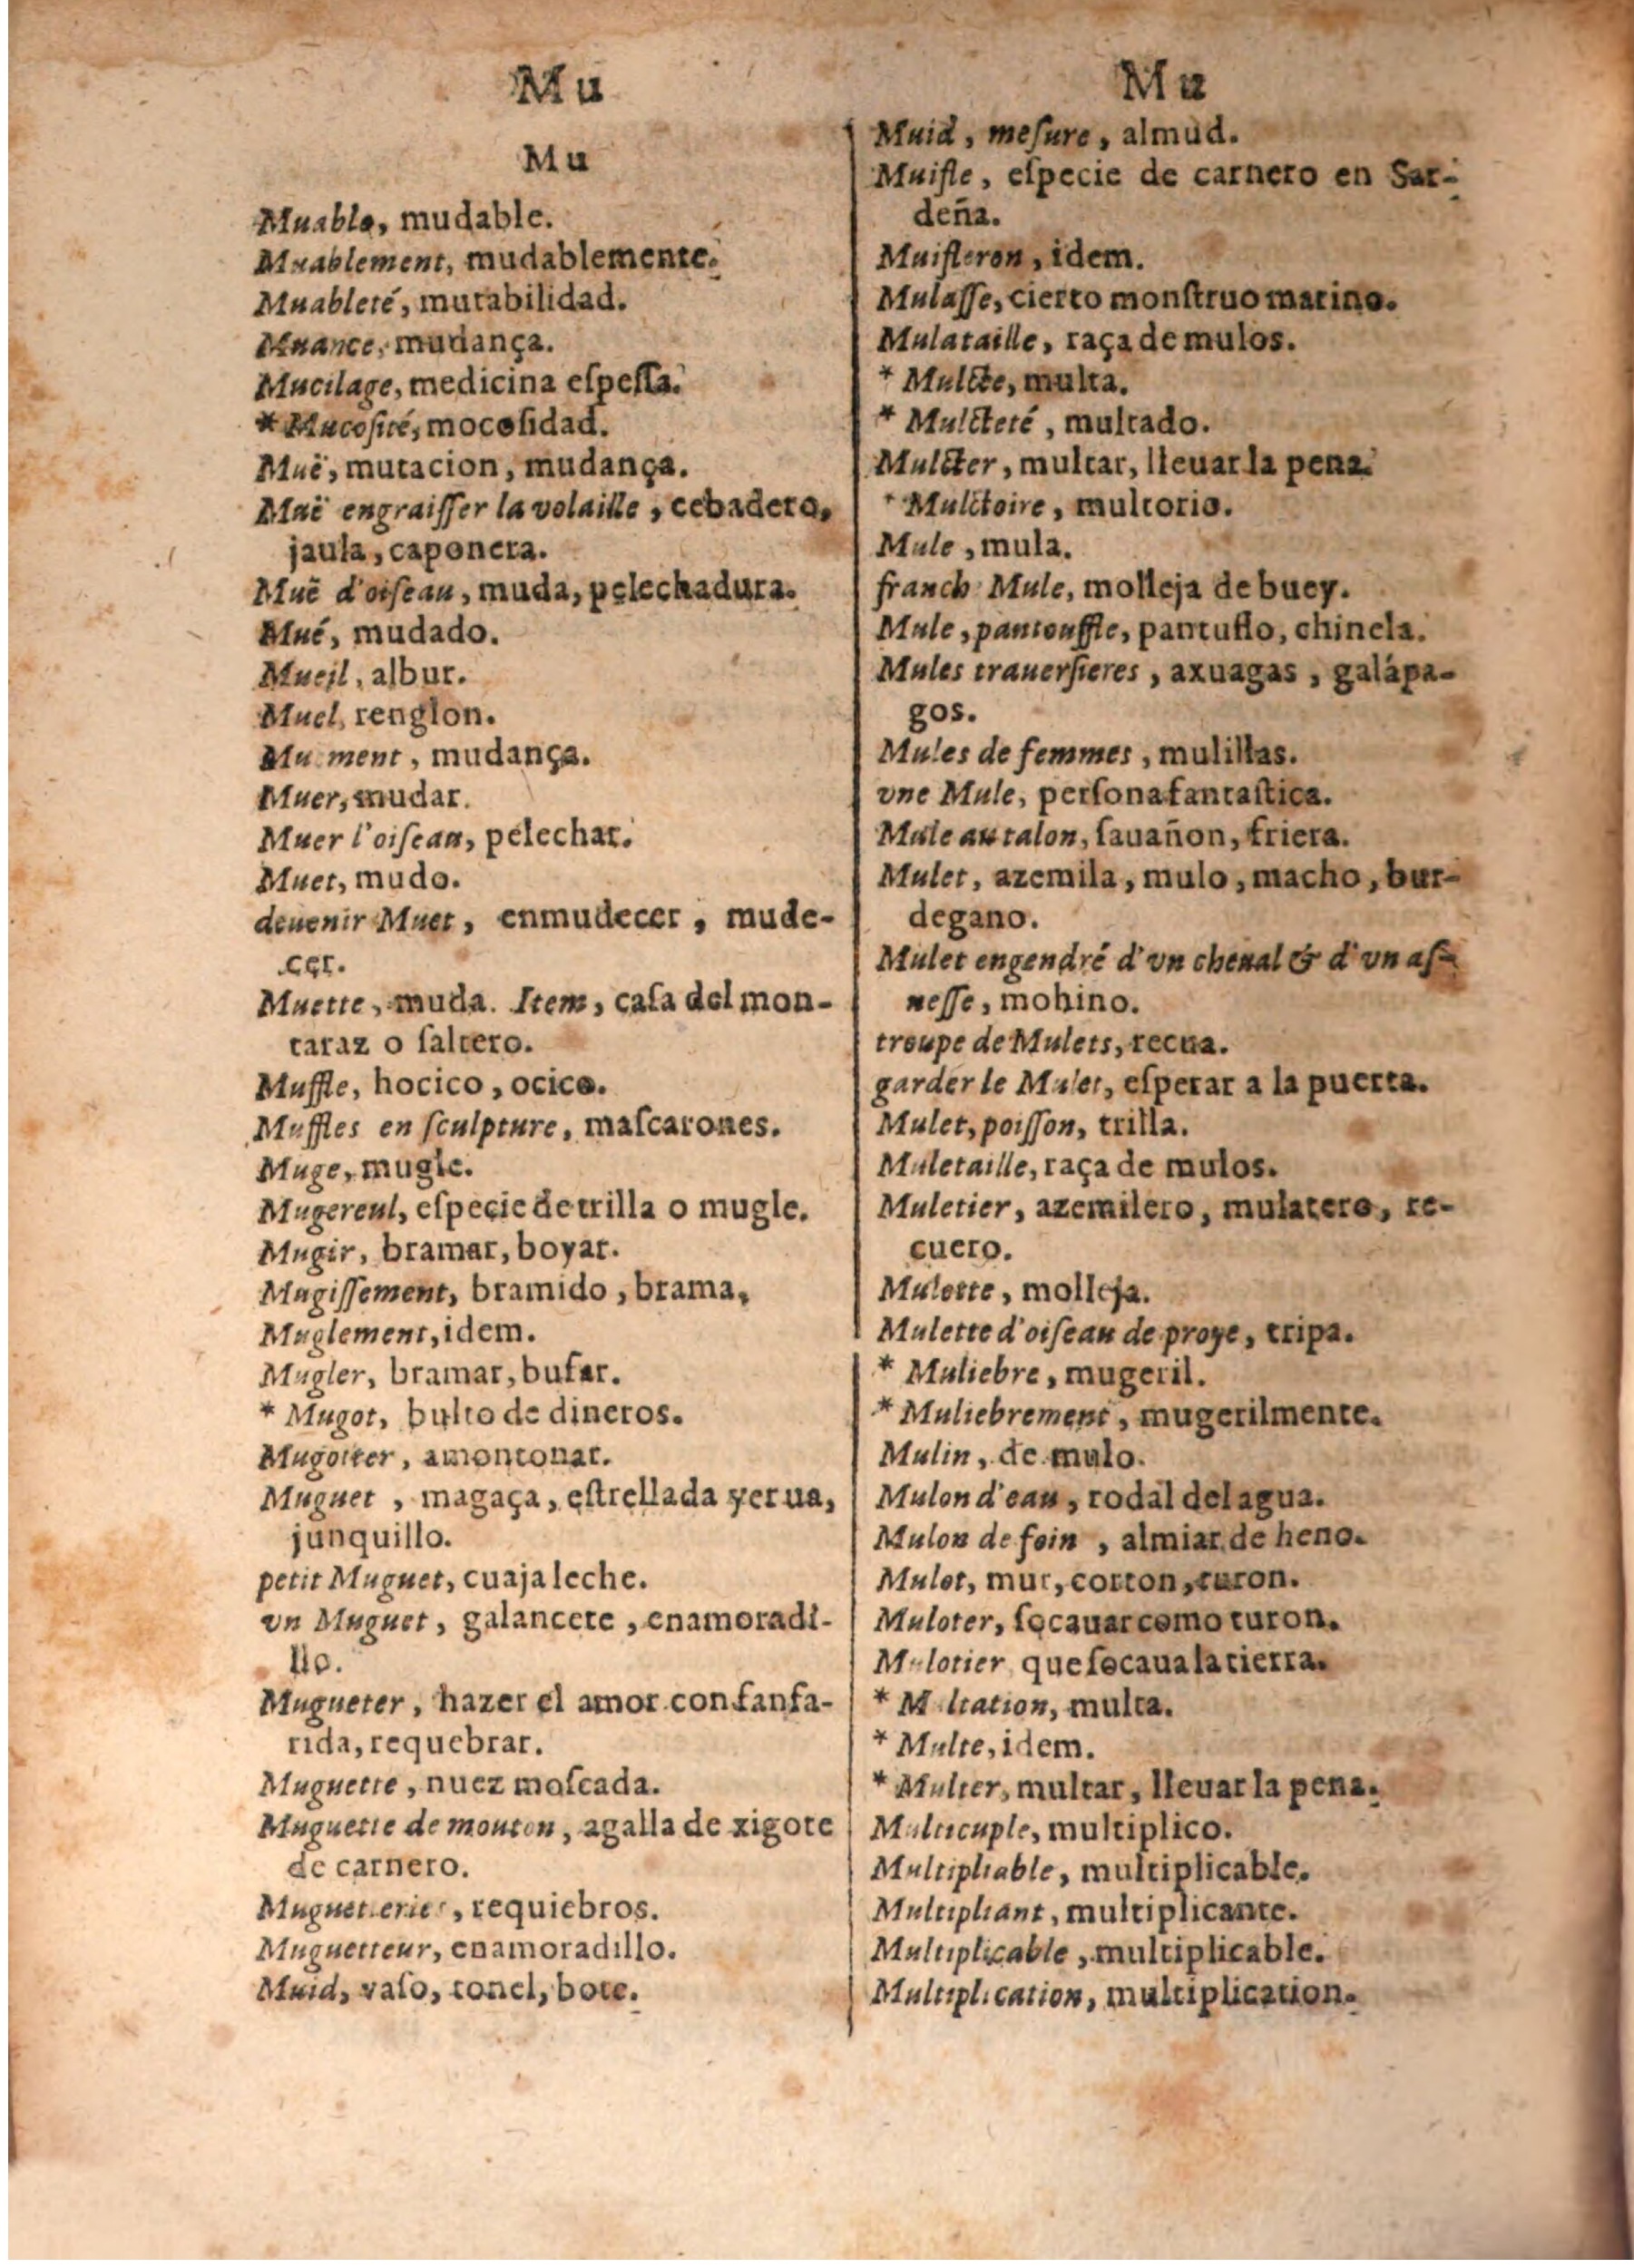 Mu
Mu
Muable, mudable.
Muablement, mudablemente.
Muableté, mutabilidad.
Muance, mudança.
Mucilage, medicina eſpeſſa.
* Mucoſité, mocoſidad.
Muë, mutacion, mudança.
Muë engraiſſer la volaille, cebadero,
jaula, caponera.
Muë d'oiſeau, muda, pelechadura.
Mué, mudado.
Mueil, albur.
Muel, renglon.
ment, mudança.
Muer, mudar.
Muer l'oiſeau, pelechar.
Muet, mudo.
deuenir Muet, enmudecer, mude-
cer.
Muette, muda. Item, caſa del mon-
taraz o ſaltero.
Muffle, hocico, ocico.
Muffles en ſculpture, maſcarones.
Muge, mugle.
Mugereul, eſpecie de trilla o mugle.
Mugir, bramar, boyar.
Mugiſſement, bramido, brama,
Muglement, idem.
Mugler, bramar, bufar.
* Mugot, bulto de dineros.
Mugotter, amontonar.
Muguet, magaça, eſtrellada yerua,
junquillo.
petit Muguet, cuaja leche.
vn Muguet, galancete, enamoradi-
llo.
Mugueter, hazer el amor con fanfa-
rida, requebrar.
Muguette, nuez moſcada.
Muguette de mouton, agalla de xigote
de carnero.
Muguetteries, requiebros.
Muguetteur, enamoradillo.
Muid, vaſo, tonel, bote.
Mu
Muid, meſure, almud.
Muifle, eſpecie de carnero en Sar-
deña.
Muifleron, idem.
Mulaſſe, cierto monſtruo marino.
Mulataille, raça de mulos.
* Mulcte, multa.
* Mulcteté, multado.
Mulcter, multar, lleuar la pena.
* Mulctoire, multorio.
Mule, mula.
franch Mule, molleja de buey.
Mule, pantouffle, pantuflo, chinela.
Mules trauerſieres, axuagas, galápa-
gos.
Mules de femmes, mulillas.
vne Mule, perſona fantaſtica.
Mule au talon, ſauañon, friera.
Mulet, azemila, mulo, macho, bur-
degano.
Mulet engendré d'vn cheual & d'vn aſ-
neſſe, mohino.
troupe de Mulets, recua.
garder le Mulet, eſperar a la puerta.
Mulet, poiſſon, trilla.
Muletaille, raça de mulos.
Muletier, azemilero, mulatero, re-
cuero.
Mulette, molleja.
Mulette d'oiſeau de proye, tripa.
* Muliebre, mugeril.
* Muliebrement, mugerilmente.
Mulin, de mulo.
Mulon d'eau, rodal del agua.
Mulon de foin, almiar de heno.
Mulot, mur, corton, turon.
Muloter, ſocauar como turon.
Mulotier que ſocaua la tierra.
* Multation, multa.
* Multe, idem.
* Multer, multar, lleuar la pena.
Multicuple, multiplico.
Multipliable, multiplicable.
Multipliant, multiplicante.
Multiplicable, multiplicable.
Multiplication, multiplication.